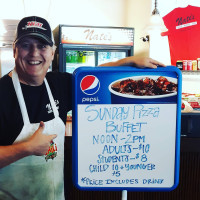 Nate's
pepsi
SUNDAY PIZZA
BUFFET
NOON-2PM
ADULTS-$10
STUDENTS-$8
CHILD 10 + YOUNGER
$5
*PRICE INCLUDES DRINK